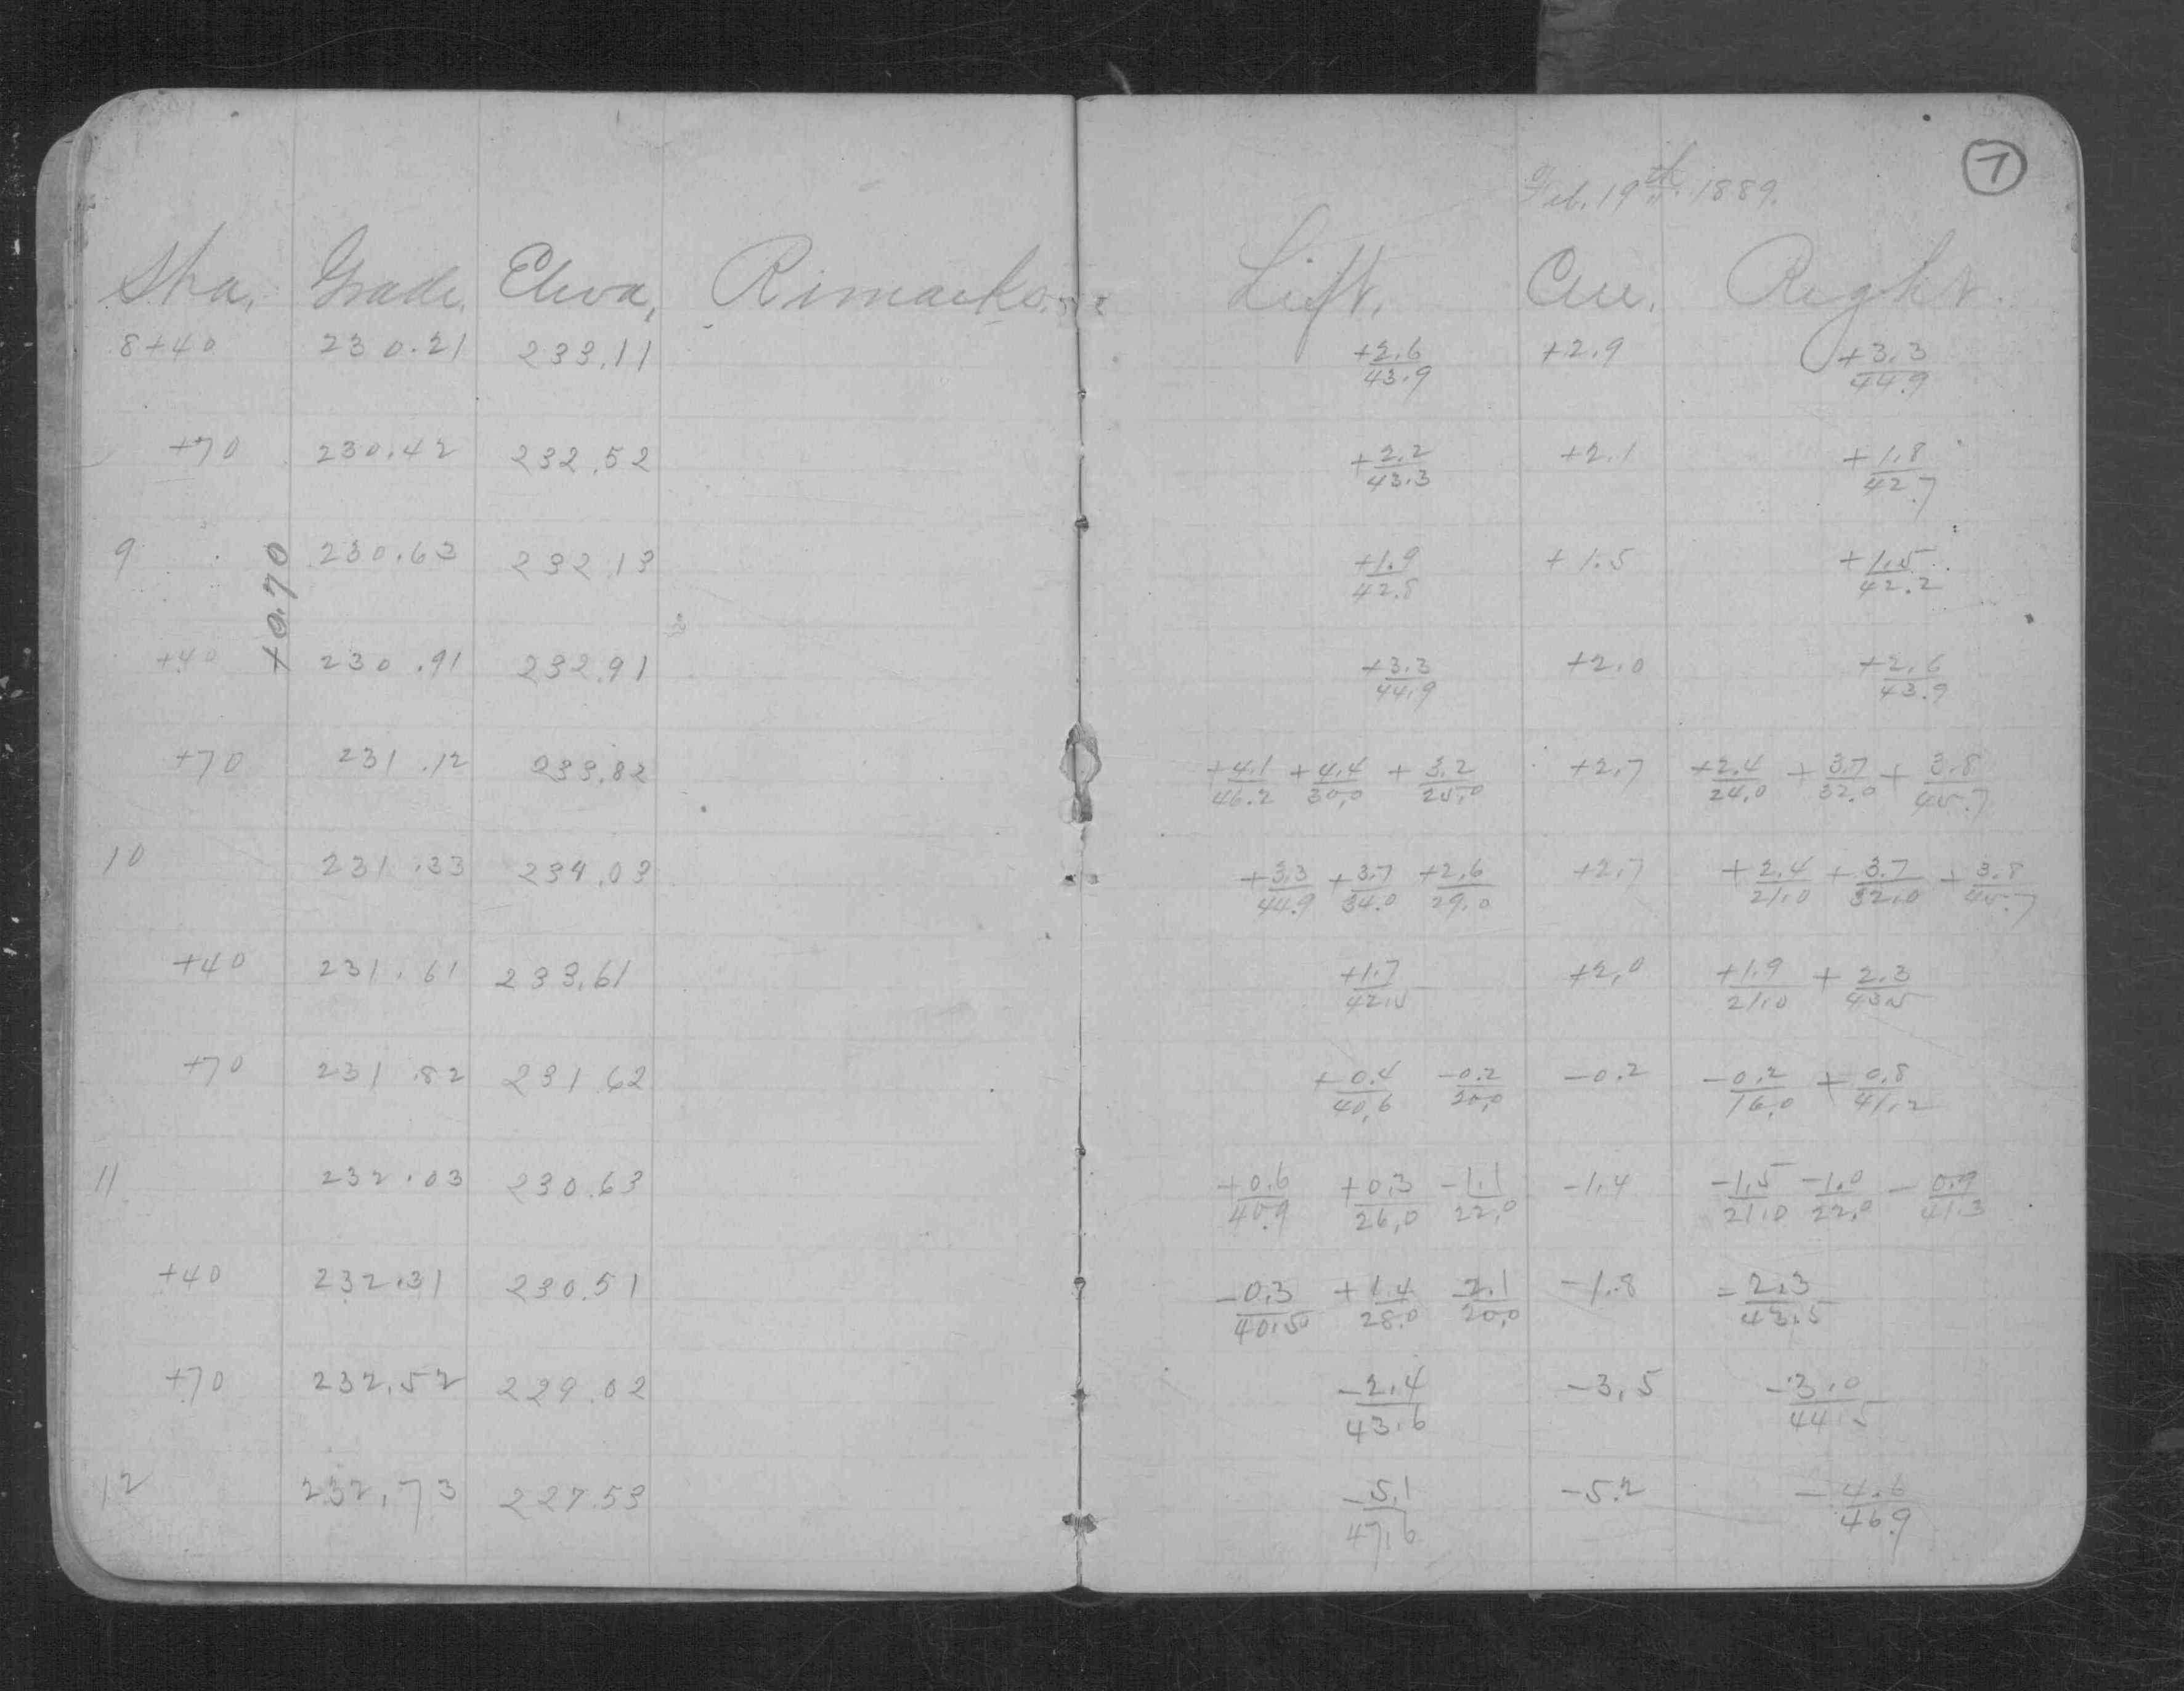 7
Feb. 19th 1889.
Sta. Grade. Eleva. Remarks. Left. Cen. Right.
8+40 230.21 233.11 +2.6/43.9 +2.9 +3.3/44.9
+70 230.42 232.52 +2.2/43.3 +2.1 +1.8/42.7
9 230.63 232.13 +1.9/42.8 +1.5 +1.5/42.2
+0.70
+40 230.91 232.91 +3.3/44.9 +2.0 +2.6/43.9
+70 231.12 233.82 +4.1/46.2 +4.4/30.0 +3.2/25.0 +2.7 +2.4/24.0 +3.7/32.0 +3.8/45.7
10 231.33 234.03 +3.3/44.9 +3.7/34.0 +2.6/29.0 +2.7 +2.4/21.0 +3.7/32.0 +3.8/45.7
+40 231.61 233.61 +1.7/42.5 +2.0 +1.9/21.0 +2.3/43.5
+70 231.82 231.62 +0.4/40.6 -0.2/20.0 -0.2 -0.2/16.0 +0.8/41.2
11 232.03 230.63 +0.6/40.9 +0.3/26.0 -1.1/22.0 -1.4 -1.5/21.0 -1.0/22.0 -0.9/41.3
+40 232.31 230.51 -0.3/40.5 +1.4/28.0 -2.1/20.0 -1.8 -2.3/43.5
+70 232.52 229.02 -2.4/43.6 -3.5 -3.0/44.5
12 232.73 227.53 -5.1/47.6 -5.2 -4.6/46.9